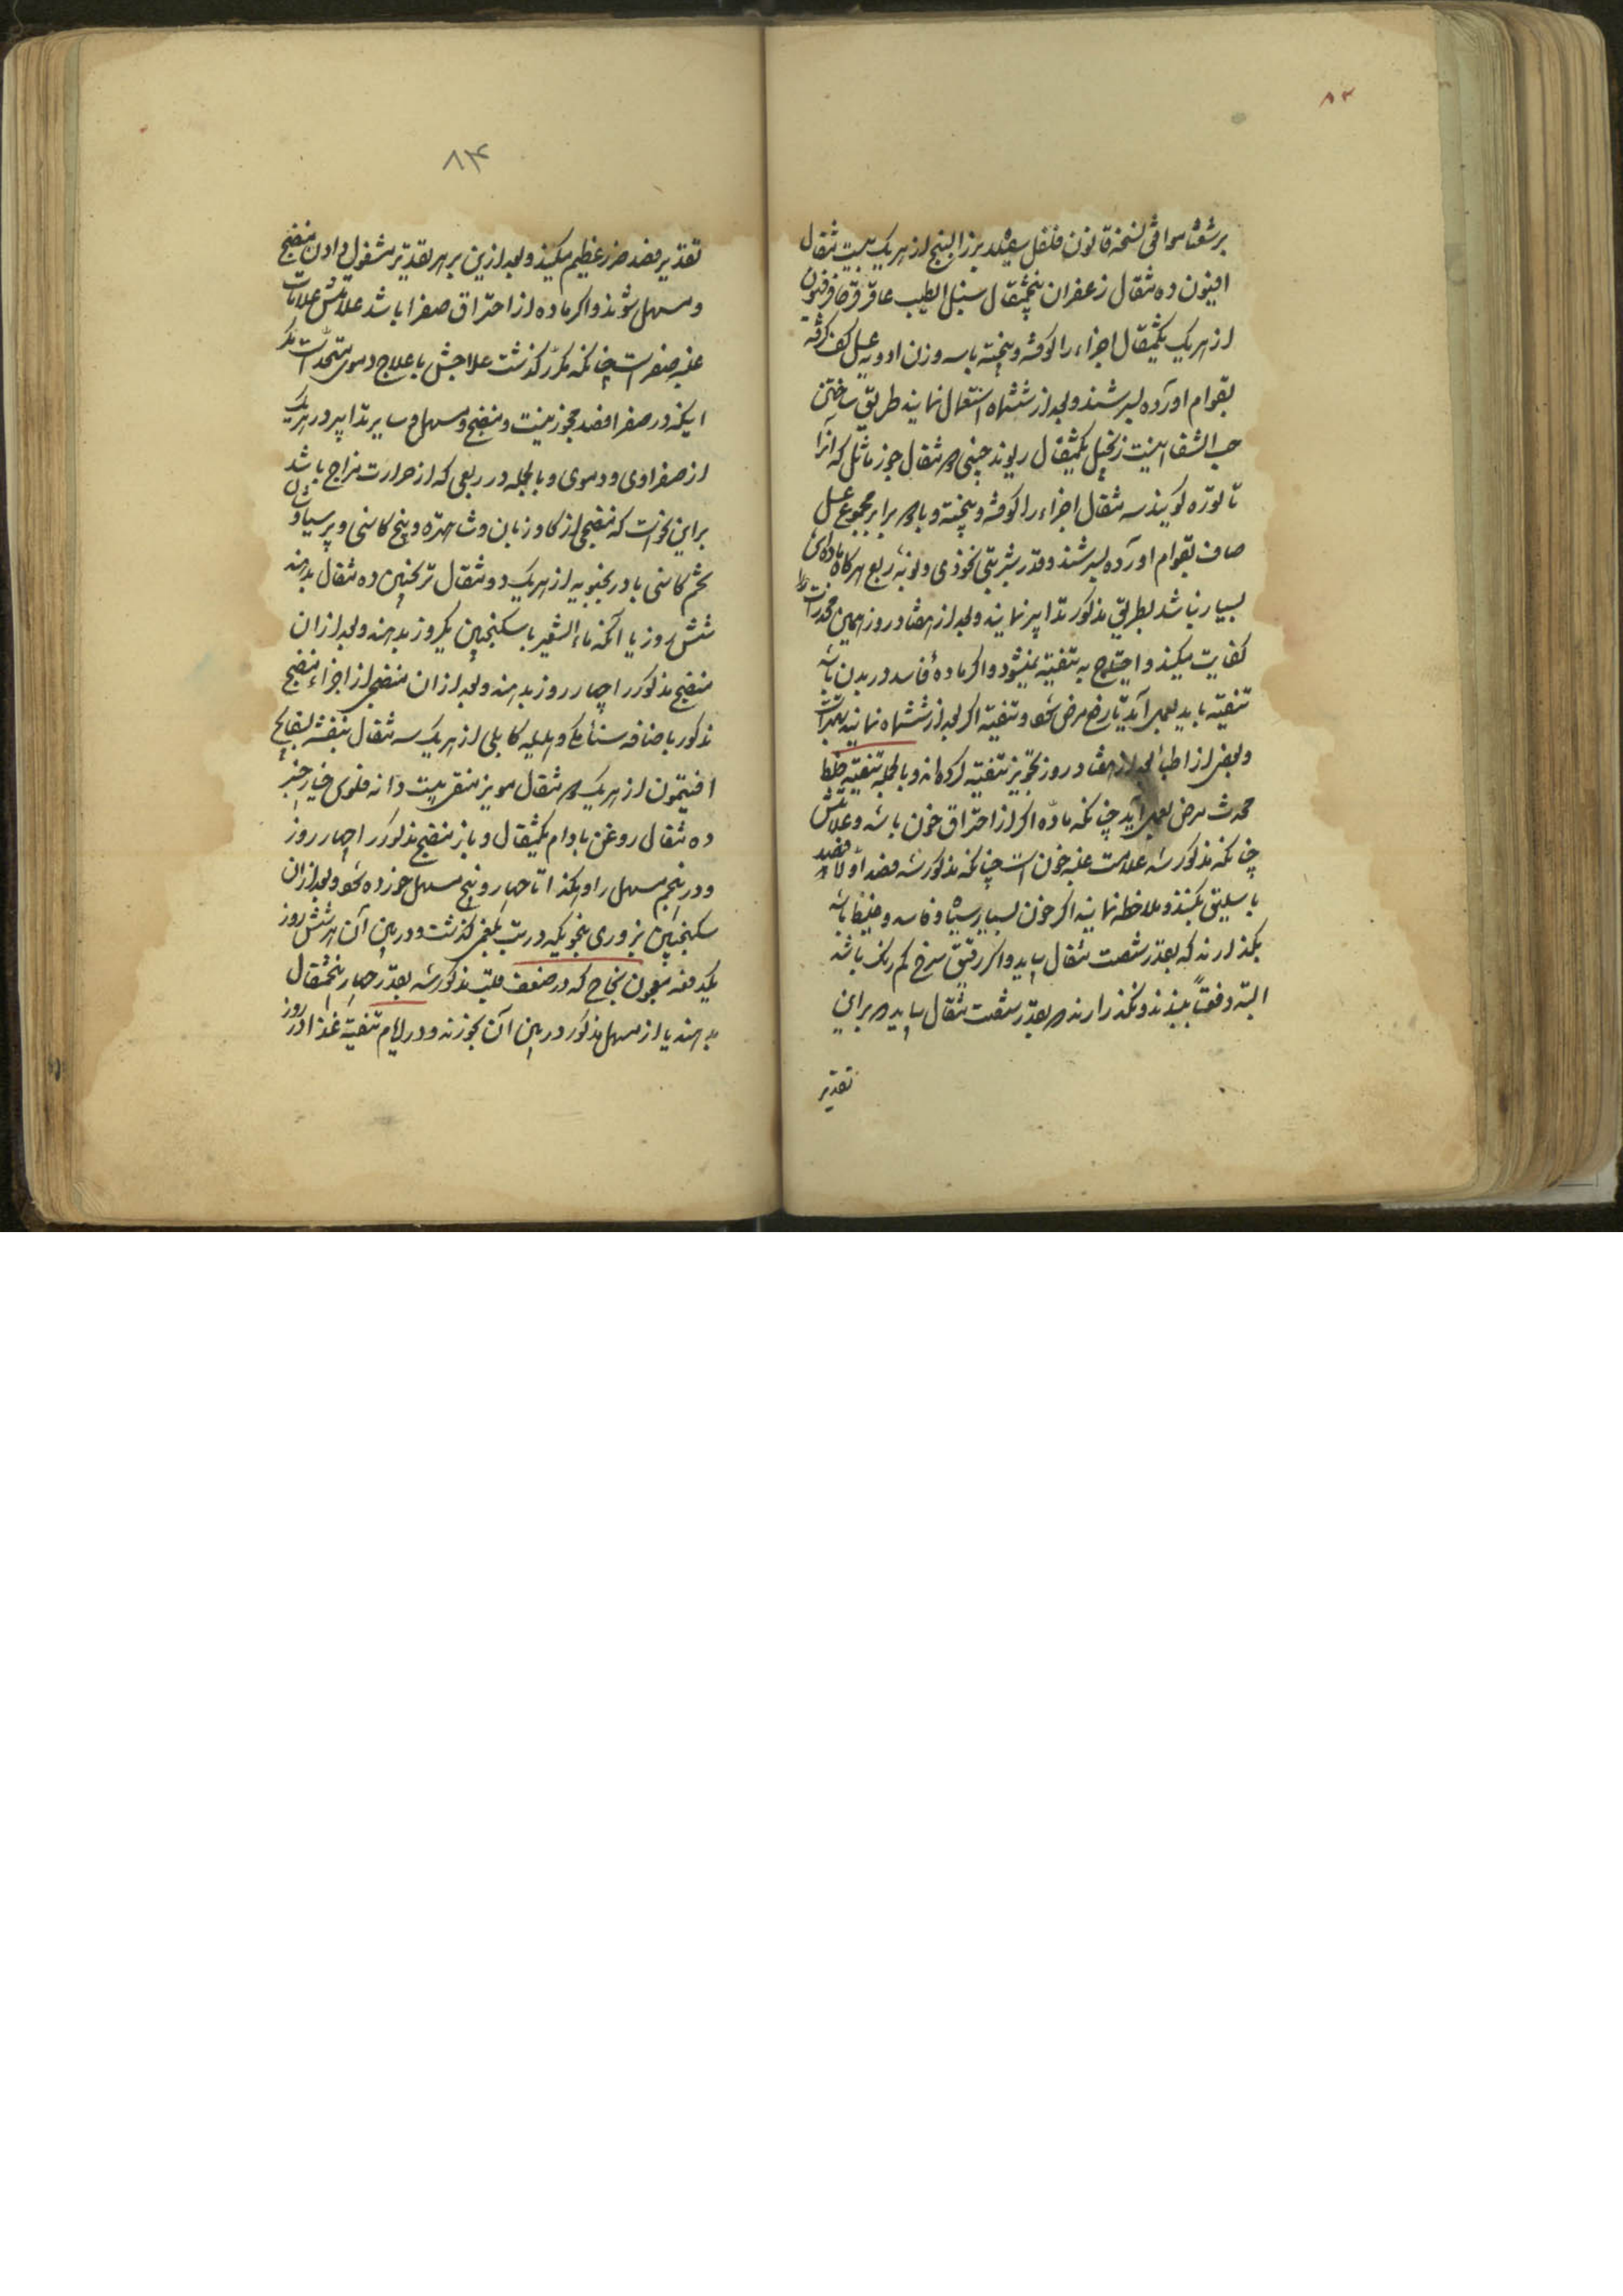 ۸۳
برشعثا موافق نسخهٔ قانون فلفل سفید بزرالبنج از هریک بیست مثقال
افیون ده مثقال زعفران پنجمثقال سنبل الطیب عاقرقرحا فرفیون
از هریک یکمثقال اجزاء را کوفته و بیخته با سه وزن ادویه عسل کف گرفته
بقوام آورده بسرشند و بعد از ششماه استعمال نمایند طریق ساختن
حب الشفا اینست زنجبیل یکمثقال ریوند چینی دو مثقال جوز ماثل که آنرا
تاتوره گویند سه مثقال اجزاء را کوفته و بیخته و با دو برابر مجموع عسل
صاف بقوام آورده بسرشند و قدر شربتی نخودی و نوبهٔ ربع هرگاه مادهٔ
بسیار نباشد بطریق مذکور تدابیر نمایند و بعد از هفتاد روز همین مخدرات
کفایت میکند و احتیاج به تنقیه نمیشود و اگر مادهٔ فاسد در بدن باشد
تنقیه باید بعمل آید تا رفع مرض شود و تنقیه اگر بعد از ششماه نمایند بهتر است
و بعضی از اطبا بعد از هفتاد روز تجویز تنقیه کرده‌اند و بالجمله تنقیه خلط
محدث مرض بعمل آید چنانکه ماده اگر از احتراق خون باشد و علامتش
چنانکه مذکور شد علامت غلبه خون است چنانکه مذکور شد فصد اولا فصد
باسلیق بکنند و ملاحظه نمایند اگر خون بسیار سیاه و فاسد و غلیظ باشد
بگذارند که بقدر شصت مثقال بیاید و اگر رقیق سرخ کم رنگ باشد
البته دفعتاً ببندند و نگذارند که بقدر شصت مثقال بیاید که براین
تقدیر
۸۴
تقدیر فصد ضرر عظیم میکند و بعد ازین بر هر تقدیر مشغول دادن منضج
و مسهل شوند و اگر ماده از احتراق صفرا باشد علامتش علامات
غلبه صفراست چنانکه مکرر گذشت علاجش با علاج دموی متحد است مگر
اینکه در صفرا فصد مجوز نیست و منضج و مسهل و سایر تدابیر در هریک
از صفراوی و دموی و بالجمله در ربعی که از حرارت مزاج باشد
براین نحو است که منضجی از گاوزبان و شاهتره و بیخ کاسنی و پرسیاوشان
تخم کاسنی بادرنجبویه از هریک دو مثقال ترنجبین ده مثقال بدهند
شش روز یا آنکه ماء الشعیر با سکنجبین یکروز بدهند و بعد از آن
منضج مذکور را چهار روز بدهند و بعد از آن منضجی از اجزاء منضج
مذکور باضافه سناء مکی و هلیله کابلی از هریک سه مثقال بنفشه بسفایج
افتیمون از هریک دو مثقال مویز منقی بیست دانه فلوس خیار چنبر
ده مثقال روغن بادام یکمثقال و باز منضج مذکور را چهار روز
و در پنجم مسهل را و هکذا تا چهار و پنج مسهل خورده شود و بعد از آن
سکنجبین بزوری بنحویکه در تب بلغمی گذشت و در بین آن هر شش روز
یکدفعه معجون نجاح که در ضعف قلب مذکور شد بقدر چهار پنجمثقال
بدهند یا از مسهل مذکور در بین آن بخورند و در ایام تنقیه غذا در روز